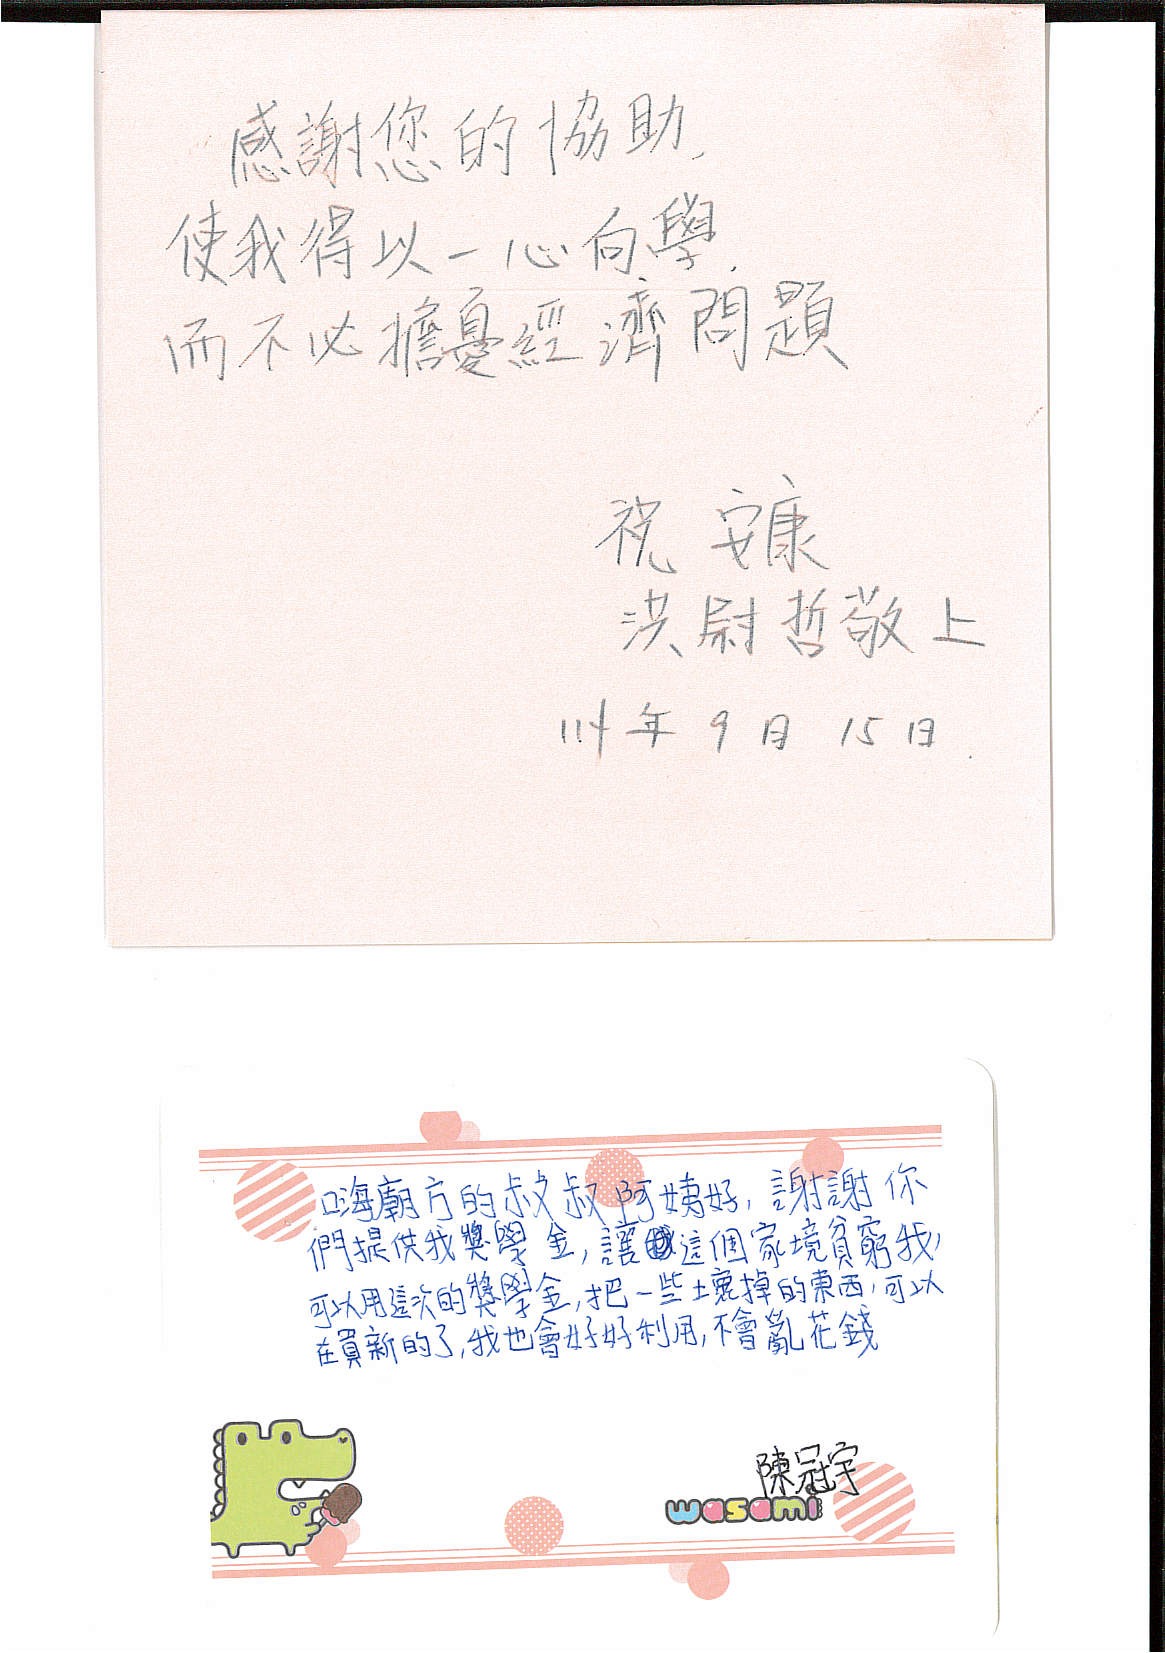 感謝您的協助,
使我得以一心向學,
而不必擔憂經濟問題
祝 安康
洪尉哲敬上
111年9月15日
口海廟方的叔叔阿姨好,謝謝你
們提供我獎學金,讓這個家境貧窮我,
可以用這次的獎學金,把一些壞掉的東西,可以
在買新的了,我也會好好利用,不會亂花錢
陳冠宇
wasami